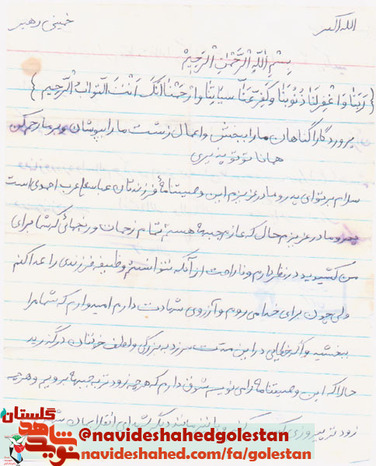 الله اکبر
خمینی رهبر
بِسْمِ اللَّهِ الرَّحْمٰنِ الرَّحِیْمْ
{رَبَّنَا وَاغْفِرْلَنَا ذُنُوبَنَا وَکَفِّرْعَنَّا سَیِّئَاتِنَا وَارْحَمْنَا اِنَّکَ اَنْتَ التَّوابُ الرَّحیمِ}
پروردگارا گناهان ما را ببخش و اعمال زشت ما را بپوشان و بر ما رحم کن
همانا تو توبه پذیری
سلام بر تو ای پدر و مادر عزیزم این وصیتنامهٔ فرزندتان عباسعلی عرب احمدی است
پدر و مادر عزیزم حال که عازم جبهه هستم تمام زحمات و رنجهائی که شما برای
من کشیدید در نظر دارم و ناراحت از آنکه نتوانستم وظیفه فرزندی را ادا کنم
ولی چون برای خدا می روم و آرزوی شهادت دارم امیدوارم که شما مرا
ببخشید و اگر خطایی در این مدت سر زد به بزرگی و لطف خودتان درگذرید
حالا که این وصیتنامه را می نویسم شوق دارم که هر چه زودتر به جبهه بروم و هر چه
زودتر پیروزی
نوید شاهد گلستان
@navideshahedgolestan
navideshahed.com/fa/golestan